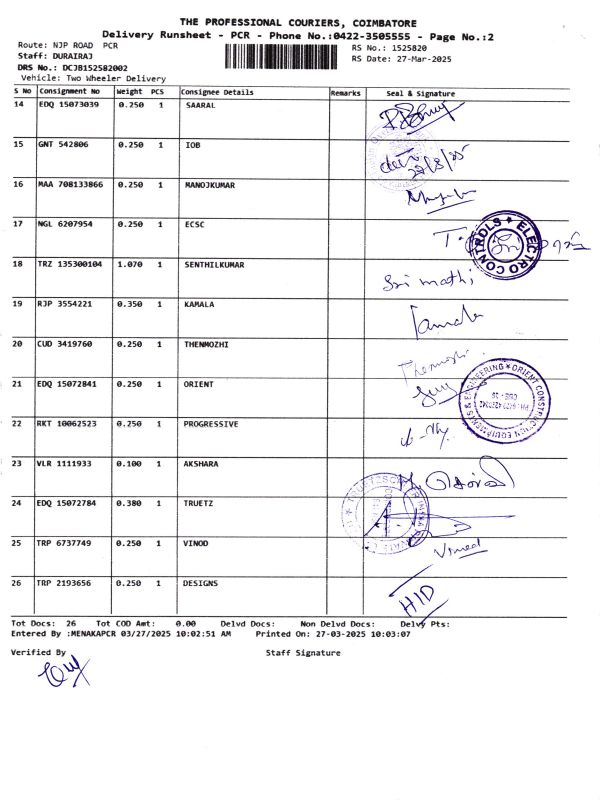 THE PROFESSIONAL COURIERS, COIMBATORE
Delivery Runsheet - PCR - Phone No.:0422-3505555 - Page No.:2
Route: NJP ROAD PCR
RS No.: 1525820
Staff: DURAIRAJ
RS Date: 27-Mar-2025
DRS No.: DCJB152582002
Vehicle: Two Wheeler Delivery
S No Consignment No Weight PCS Consignee Details Remarks Seal & Signature
14 EDQ 15073039 0.250 1 SAARAL
15 GNT 542806 0.250 1 IOB
16 MAA 708133866 0.250 1 MANOJKUMAR
17 NGL 6207954 0.250 1 ECSC
ELECTRO CONTROLS
18 TRZ 135300104 1.070 1 SENTHILKUMAR Sri mathi
19 RJP 3554221 0.350 1 KAMALA Kamala
20 CUD 3419760 0.250 1 THENMOZHI Thenmozhi
21 EDQ 15072841 0.250 1 ORIENT
ORIENT CONSTRUCTION EQUIPMENTS & ENGINEERING
22 RKT 10062523 0.250 1 PROGRESSIVE
23 VLR 1111933 0.100 1 AKSHARA
24 EDQ 15072784 0.380 1 TRUETZ
25 TRP 6737749 0.250 1 VINOD Vinod
26 TRP 2193656 0.250 1 DESIGNS HID
Tot Docs: 26 Tot COD Amt: 0.00 Delvd Docs: Non Delvd Docs: Delvy Pts:
Entered By :MENAKAPCR 03/27/2025 10:02:51 AM Printed On: 27-03-2025 10:03:07
Verified By Staff Signature